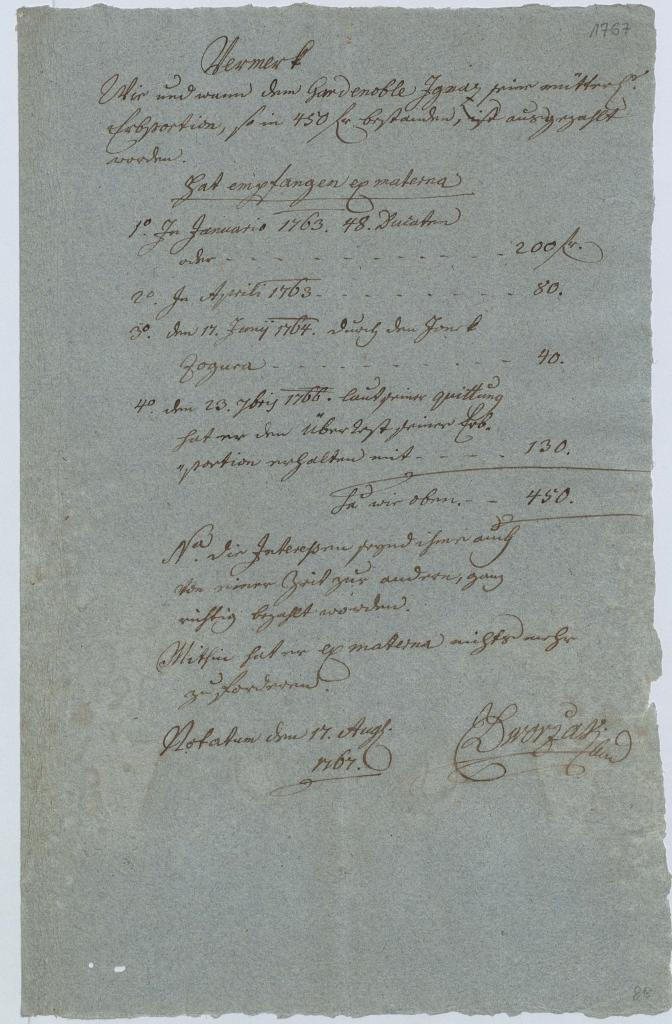 1767
Vermerk
Wie und wann dem Gardenoble Ignaz seine mütterl.
Erbportion, so in 450 fr bestanden, ist ausgezahlt
worden.
Hat empfangen ex materna
1º In Januario 1763. 48. Ducaten
oder - - - - - - - - 200 fr.
2º. In Aprili 1763 - - - - - - 80.
3º. den 17. Junij 1764. durch den
Zogura - - - - - - - 40.
4º den 23. 7bris 1766. laut seiner quittung
hat er den Überrest seiner Erb-
portion erhalten mit - - - - 130.
wie oben. - - 450.
Na. die Interessen seynd ihme auch
von einer Zeit zur andern, ganz
richtig bezahlt worden.
Mithin hat er ex materna nichts mehr
zu forderen.
Notatum den 17. Aug.
1767.
Dworzak